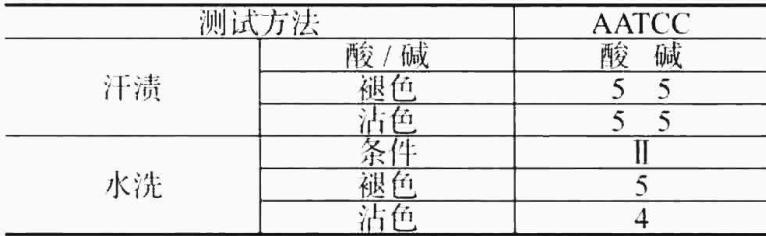 测试方法 AATCC
酸/碱 酸 碱
汗渍 褪色 5 5
沾色 5 5
条件 Ⅱ
水洗 褪色 5
沾色 4